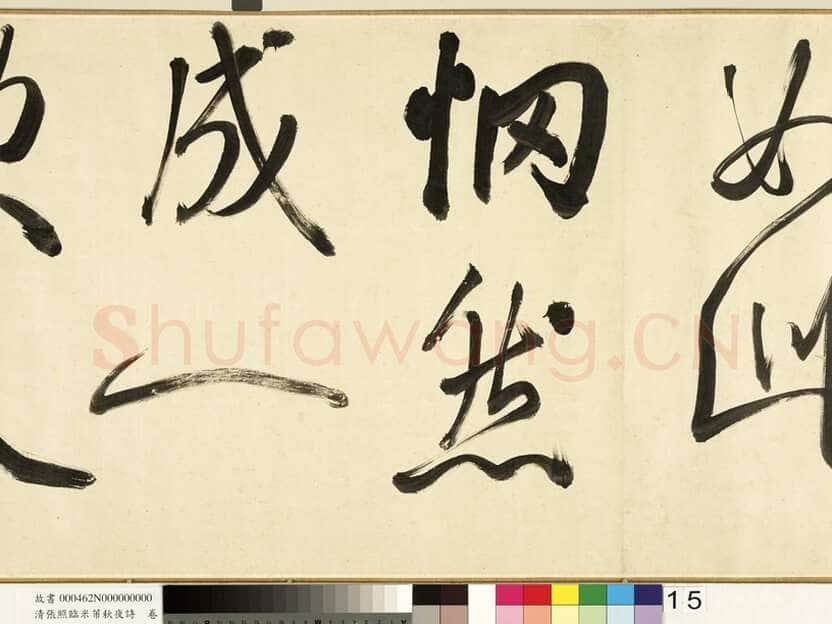 惘然
成一
Shufawang.CN
故書 000462N000000000
清張照臨米芾秋夜詩 卷
15